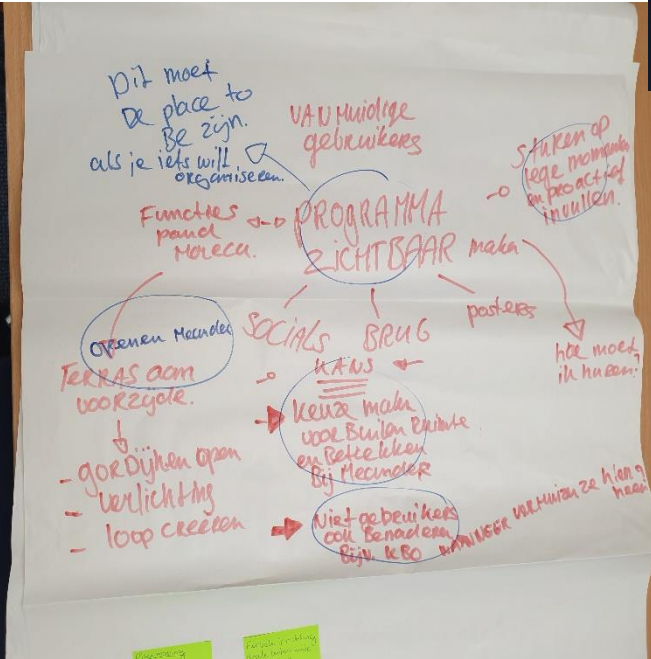 Dit moet
De place to
Be zijn.
als je iets wilt
organiseren.
VAN Huidige
gebruikers
Sturen op
lege momenten
en proactief
invullen.
Functies
pand
Horeca.
PROGRAMMA
ZICHTBAAR maken
SOCIALS
BRUG
posters
hoe moet
ik huren?
openen Meander
TERRAS aan
voorzijde.
- gordijnen open
- verlichting
- loop creeren
KANS
keuze maken
voor Buiten Ruimte
en Betrekken
Bij Meander
Niet gebruikers
ook Benaderen
Bijv. KBO
WANNEER verhuizen ze hier
heen?